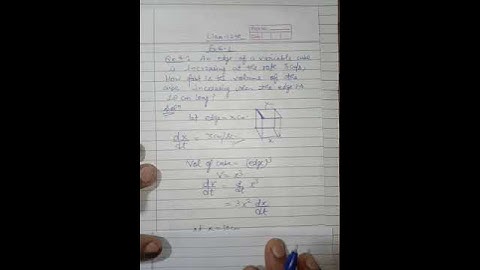 Ex 6.1 An edge of a variable cube
is increasing at the rate 3cm/s,
How fast is the volume of the
cube increasing when the edge is
10 cm long?
Solⁿ
let edge = x cm
dx/dt = 3 cm/s
x
Vol of cube = (edge)³
V = x³
dx/dt = d/dt x³
= 3x² dx/dt
at x = 10cm